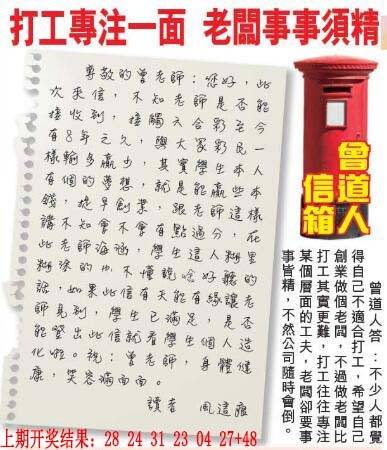 打工專注一面 老闆事事須精
尊敬的曾老師：您好，此
次來信，不知老師是否能
接收到，接觸六合彩至今
有8年之久，與大家彩民一
樣輸多贏少，其實學生本人
有個的夢想，就是能贏些本
錢，提早創業，跟老師這樣
講不知會不會有點過分，在
此老師海涵，學生這人糊里
糊塗的，不懂說啥好聽的
話，如果此信有天能有緣讓老
師見到，學生已滿足，是否
能登出此信就看學生個人造
化啦。祝：曾老師，身體健
康，笑容滿面。
讀者 風這
曾道人
信箱
曾道人答：不少人都覺
得自己不適合打工，希望自己
創業做個老闆，不過做老闆比
打工其實更難，打工往往專注
某個層面的工夫，老闆卻要事
事皆精，不然公司隨時會倒。
上期开奖结果：28 24 31 23 04 27+48